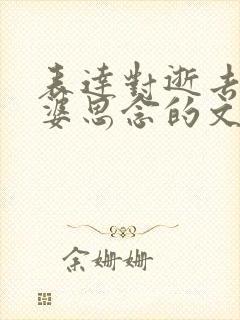 表達對逝去
婆思念的文
余姗姗